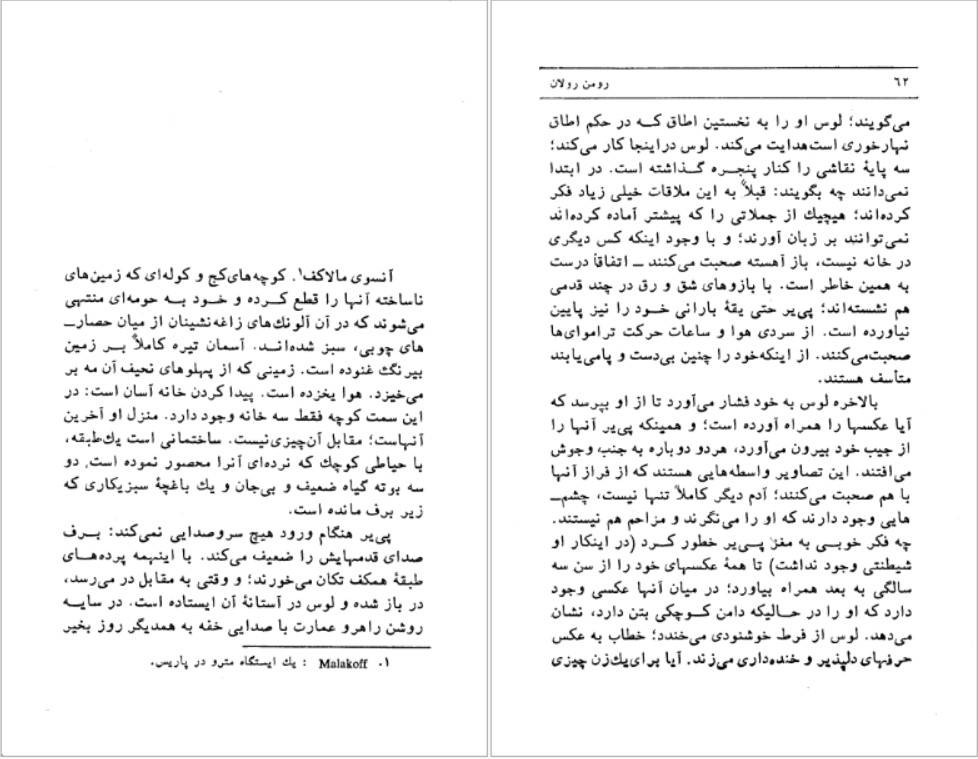 آنسوی مالاکف۱. کوچه‌های‌کج و کوله‌ای که زمین‌های
ناساخته آنها را قطع کرده و خود بـه حومه‌ای منتهی
می‌شوند که در آن آلونك‌های زاغه‌نشینان از میان حصارــ
های چوبی، سبز شده‌انـد. آسمان تیره کاملاً بـر زمین
بیرنگ غنوده است. زمینی که از پهلوهای نحیف آن مه بر
می‌خیزد. هوا یخزده است. پیدا کردن خانه آسان است: در
این سمت کوچه فقط سه خانه وجود دارد. منزل او آخرین
آنهاست؛ مقابل آن‌چیزی‌نیست. ساختمانی است یك‌طبقه،
با حیاطی کوچك که نرده‌ای آنرا محصور نموده است، دو
سه بوته گیاه ضعیف و بی‌جان و یك باغچهٔ سبزیکاری که
زیر برف مانده است.
پی‌یر هنگام ورود هیچ سروصدایی نمی‌کند: بـرف
صدای قدمهایش را ضعیف می‌کند. با اینهمه پرده‌هـای
طبقهٔ همکف تکان می‌خورند؛ و وقتی به مقابل در می‌رسد،
در باز شده و لوس در آستانهٔ آن ایستاده است. در سایـه
روشن راهرو عمارت با صدایی خفه به همدیگر روز بخیر
۱. Malakoff : یك ایستگاه مترو در پاریس.
۶۲ رومن رولان
می‌گویند؛ لوس او را به نخستین اطاق کـه در حکم اطاق
نهارخوری است‌هدایت می‌کند. لوس دراینجا کار می‌کند؛
سه پایهٔ نقاشی را کنار پنجـره گـذاشته است. در ابتدا
نمی‌دانند چه بگویند: قبلاً به این ملاقات خیلی زیاد فکر
کرده‌اند؛ هیچیك از جملاتی را که پیشتر آماده کرده‌اند
نمی‌توانند بر زبان آورند؛ و با وجود اینکه کس دیگری
در خانه نیست، باز آهسته صحبت می‌کنند ــ اتفاقاً درست
به همین خاطر است. با بازوهای شق و رق در چند قدمی
هم نشسته‌اند؛ پی‌یر حتی یقهٔ بارانی خود را نیز پایین
نیاورده است. از سردی هوا و ساعات حرکت تراموای‌ها
صحبت‌می‌کنند. از اینکه‌خود را چنین بی‌دست و پامی‌یابند
متأسف هستند.
بالاخره لوس به خود فشار می‌آورد تا از او بپرسد که
آیا عکسها را همراه آورده است؛ و همینکه پی‌یر آنها را
از جیب خود بیرون می‌آورد، هردو دوباره به جنب وجوش
می‌افتند. این تصاویر واسطه‌هایی هستند که از فراز آنها
با هم صحبت می‌کنند؛ آدم دیگر کاملاً تنها نیست، چشم‌ــ
هایی وجود دارند که او را می‌نگرند و مزاحم هم نیستند.
چه فکر خوبی به مغز پـی‌یر خطور کـرد (در اینکار او
شیطنتی وجود نداشت) تا همهٔ عکسهای خود را از سن سه
سالگی به بعد همراه بیاورد؛ در میان آنها عکسی وجود
دارد که او را در حـالیکه دامن کـوچکی بتن دارد، نشان
می‌دهد. لوس از فرط خوشنودی می‌خندد؛ خطاب به عکس
حرفهای دلپذیر و خنده‌داری می‌زند. آیا برای‌یك‌زن چیزی